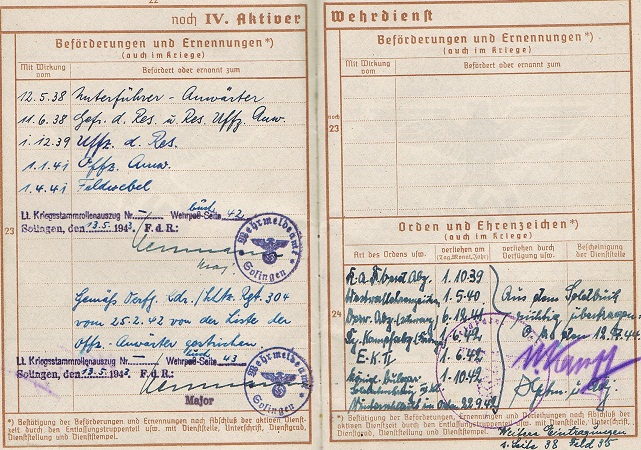 22
noch IV. Aktiver
Beförderungen und Ernennungen*)
(auch im Kriege)
Mit Wirkung vom
Befördert oder ernannt zum
12.5.38 Unterführer-Anwärter
11.6.38 Gefr. d. Res. u. Res. Uffz. Anw.
1.12.39 Uffz. d. Res.
1.1.41 Offz. Anw.
1.4.41 Feldwebel
23
Lt. Kriegsstammrollenauszug Nr. – Wehrpaß-Seite 42
Solingen, den 13.5.1943 F. d. R.:
Wehrmeldeamt
Solingen
Gemäß Verfg. Kdr. Rgt. 304
vom 25.2.42 von der Liste der
Offz.-Anwärter gestrichen.
Lt. Kriegsstammrollenauszug Nr. Wehrpaß-Seite 43
Solingen, den 13.5.1943 F. d. R.:
Major
Wehrmeldeamt
Solingen
*) Bestätigung der Beförderungen und Ernennungen nach Abschluß der aktiven Dienst-
zeit durch den Entlassungstruppenteil usw. mit Dienststelle, Unterschrift, Dienstgrad,
Dienststellung und Dienststempel.
Wehrdienst
Beförderungen und Ernennungen*)
(auch im Kriege)
Mit Wirkung vom
Befördert oder ernannt zum
noch 23
Orden und Ehrenzeichen*)
(auch im Kriege)
Art des Ordens usw.
verliehen am (Tag, Monat, Jahr)
verliehen durch Verfügung vom
Bescheinigung der Dienststelle
24
1.10.39
1.5.40
Verw. Abz. (schwarz)
1.6.42
E.K.II 1.6.42
1.10.42
Aus dem Soldbuch
richtig übertragen
*) Bestätigung der Beförderungen, Ernennungen und Verleihungen nach Abschluß der
aktiven Dienstzeit durch den Entlassungstruppenteil usw. mit Dienststelle, Unterschrift,
Dienstgrad, Dienststellung und Dienststempel.
Weitere Eintragungen
s. Seite 38 Feld 35